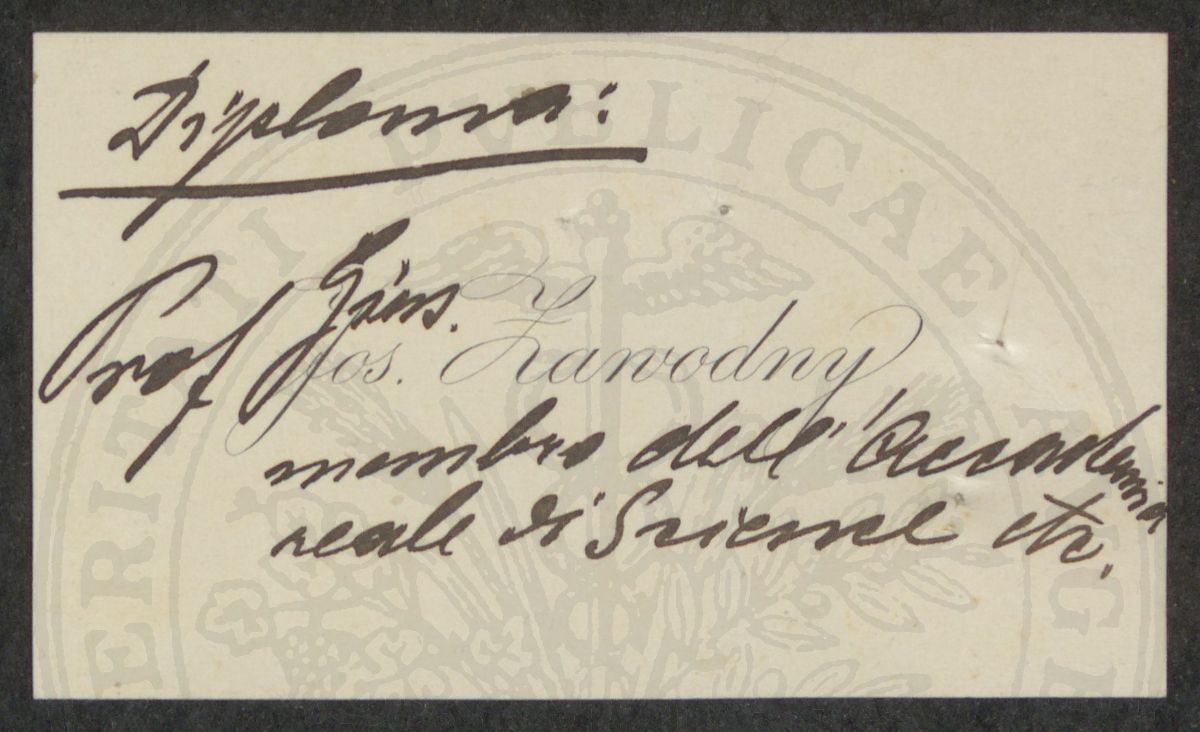 Diploma:
Prof Gius.
Jos. Zawodny
membro dell' Accademia
reale di Scienze etc.
PVBLICAE